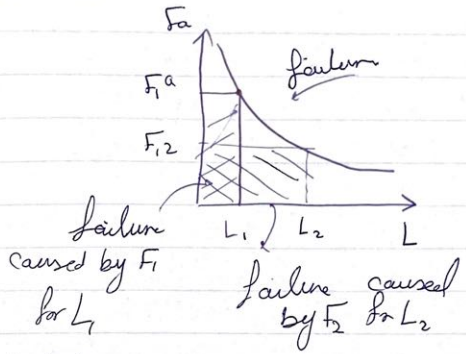 Fa
F₁ᵃ
failure
F₁₂
L₁ L₂ L
failure
caused by F₁
for L₁
failure caused
by F₂ for L₂